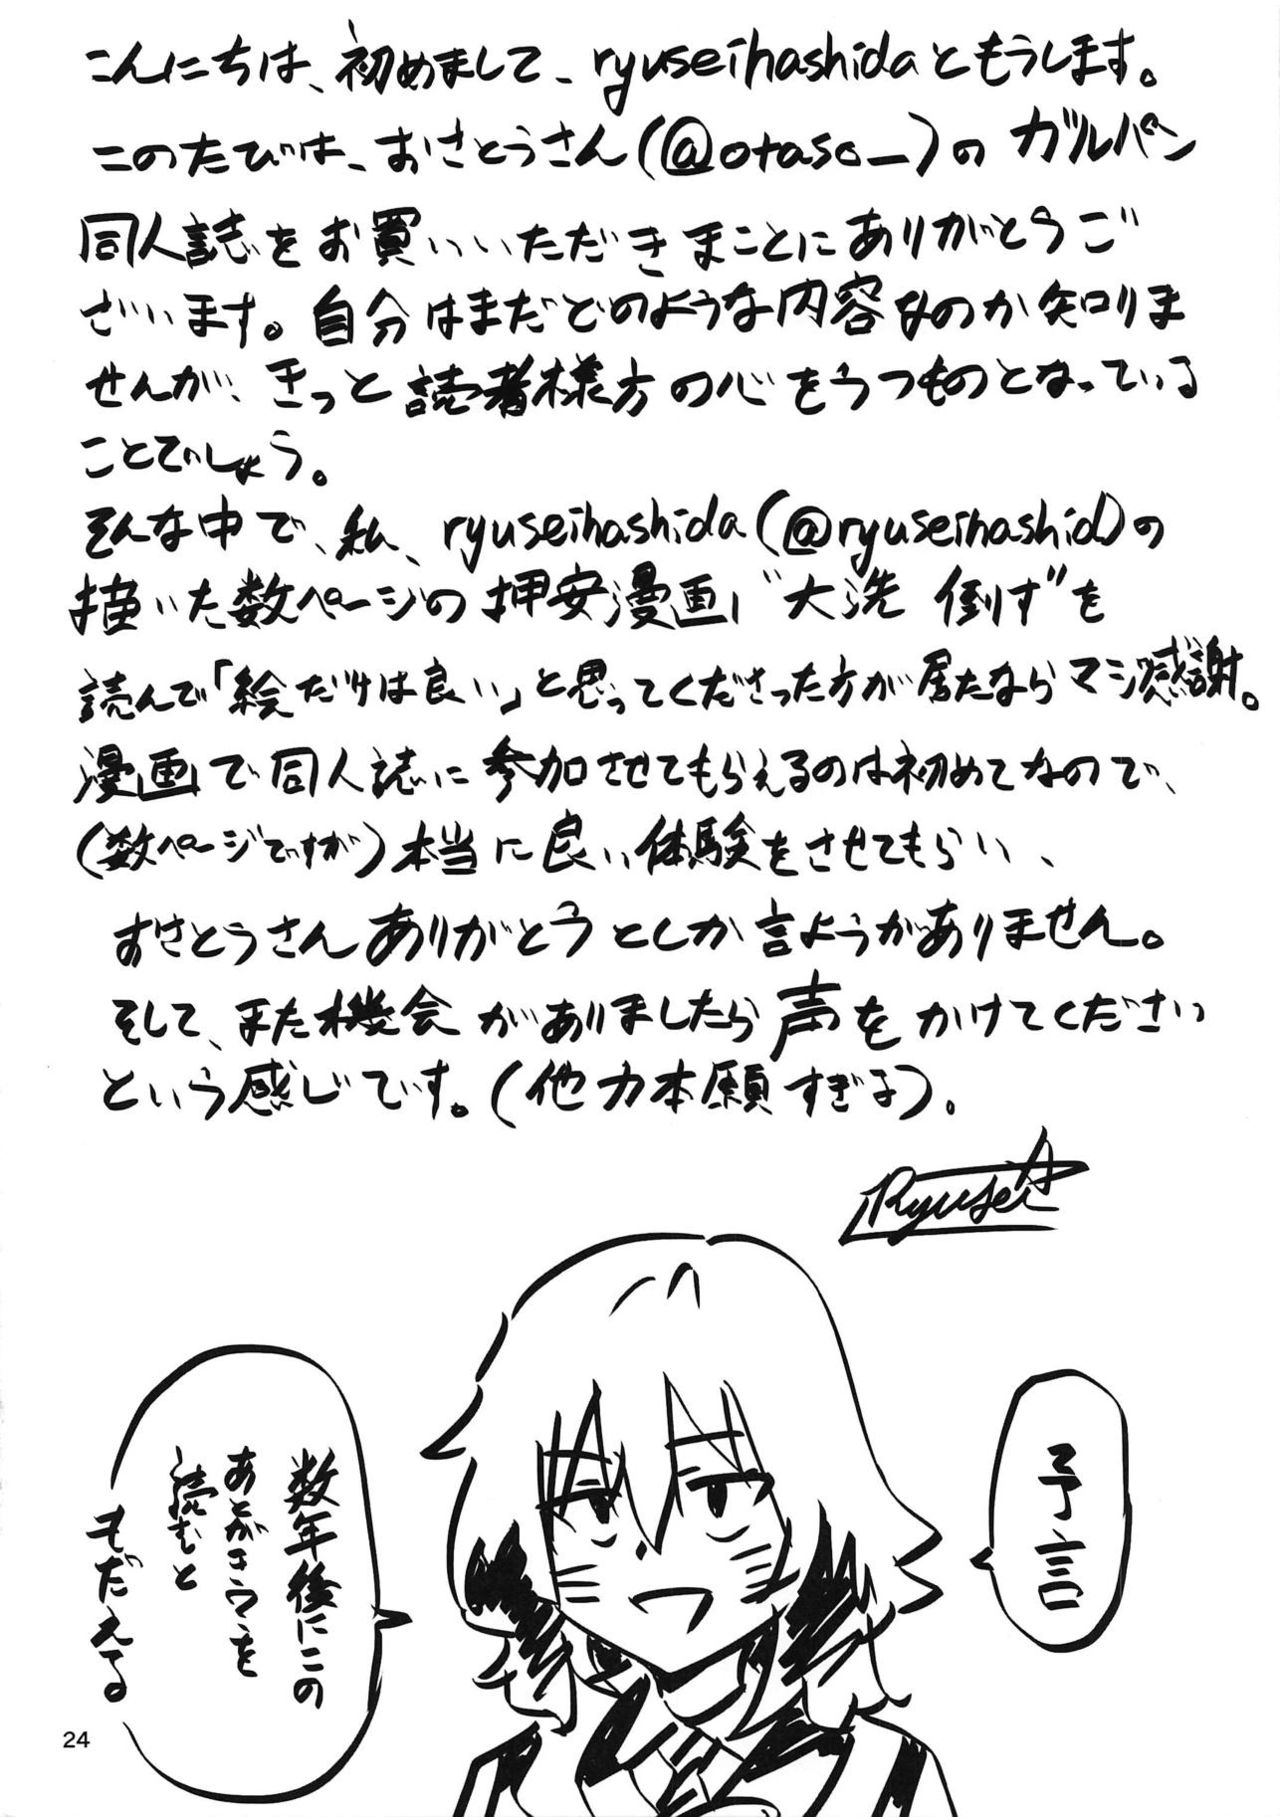 こんにちは、初めまして、ryuseihashidaともうします。
このたびは、おさとうさん(@otaso_)のガルパン
同人誌をお買いいただきまことにありがとうご
ざいます。自分はまだどのような内容なのか知りま
せんが、きっと読者様方の心をうつものとなっている
ことでしょう。
そんな中で、私、ryuseihashida(@ryuseihashid)の
描いた数ページの押安漫画"大洗 倒す"を
読んで「絵だけは良い」と思ってくださった方が居たならマジ感謝。
漫画で同人誌に参加させてもらえるのは初めてなので、
(数ページですが)本当に良い体験をさせてもらい、
おさとうさんありがとうとしか言ようがありません。
そして、また機会がありましたら声をかけてください
という感じです。(他力本願すぎな)。
Ryusei
予言
数年後にこの
あとがきを
読むと
もだえてる
24